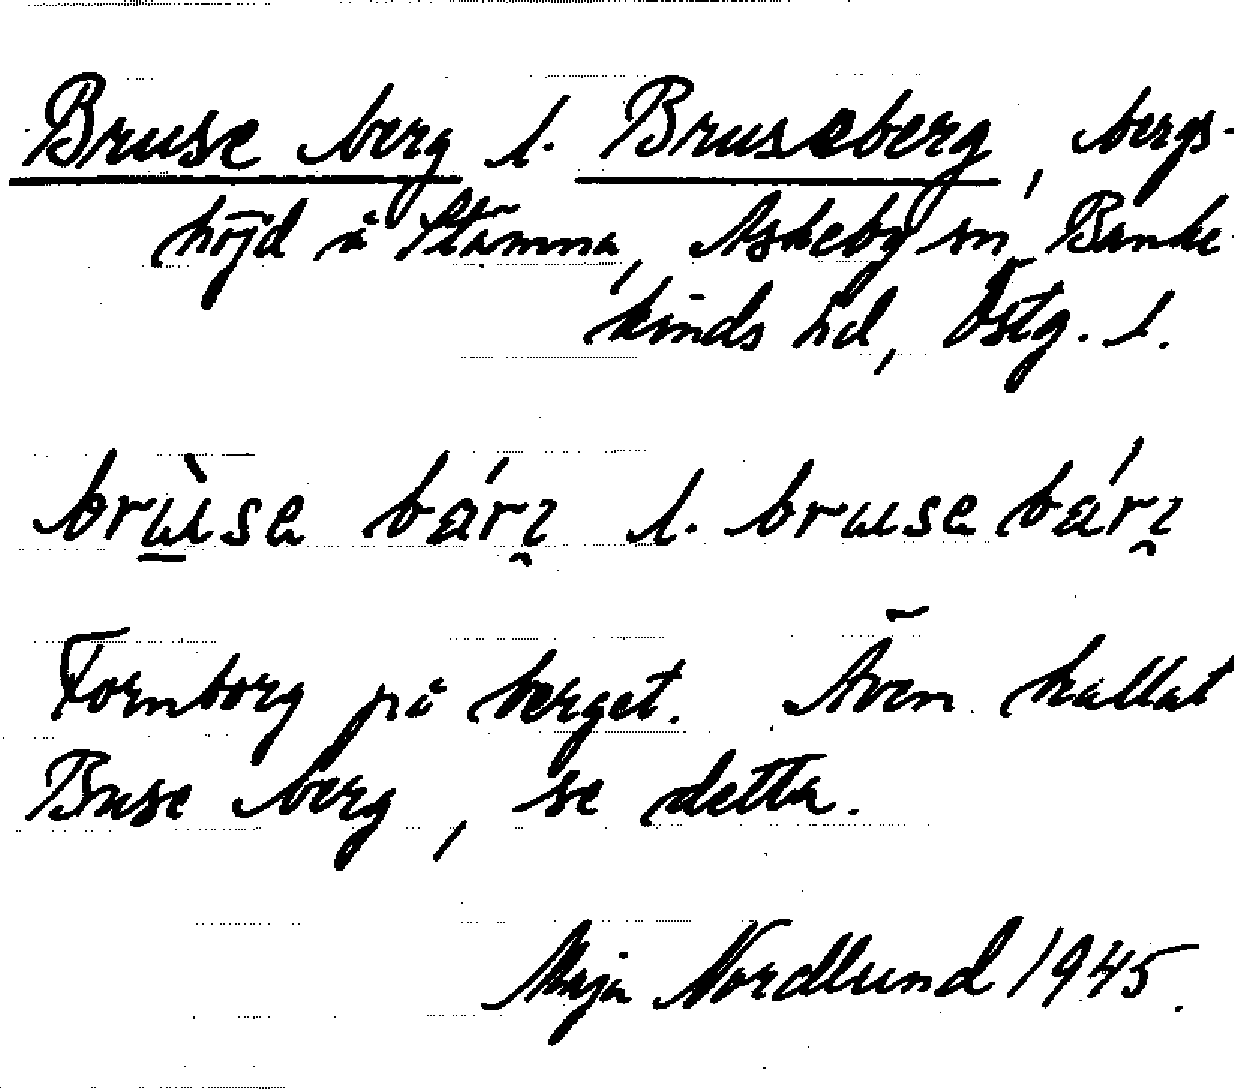 Bruse berg l. Bruseberg, bergs-
höjd å Stämma, Askeby sn, Banke-
kinds hd, Östg. l.
brùsa bárʒ l. brusa bárʒ
Fornborg på berget. Även kallat
Buse berg, se detta.
Maja Nordlund 1945.